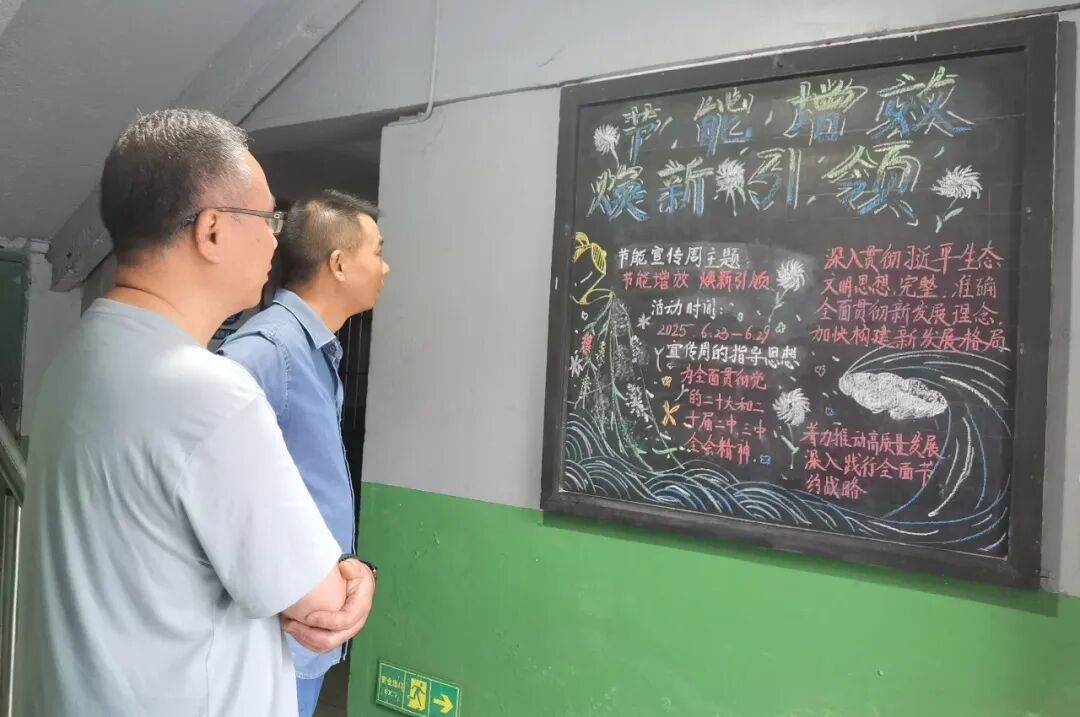 节能增效
焕新引领
节能宣传周主题
节能增放 焕新引领
活动时间:
2025 6.23—6.29
宣传周的指导思想
为全面贯彻党
的二十大和二
十届二中、三中
全会精神、
深入贯彻习近平生态
文明思想,完整、准确
全面贯彻新发展理念,
加快构建新发展格局
着力推动高质量发展
深入践行全面节
约战略
安全出口
EXIT